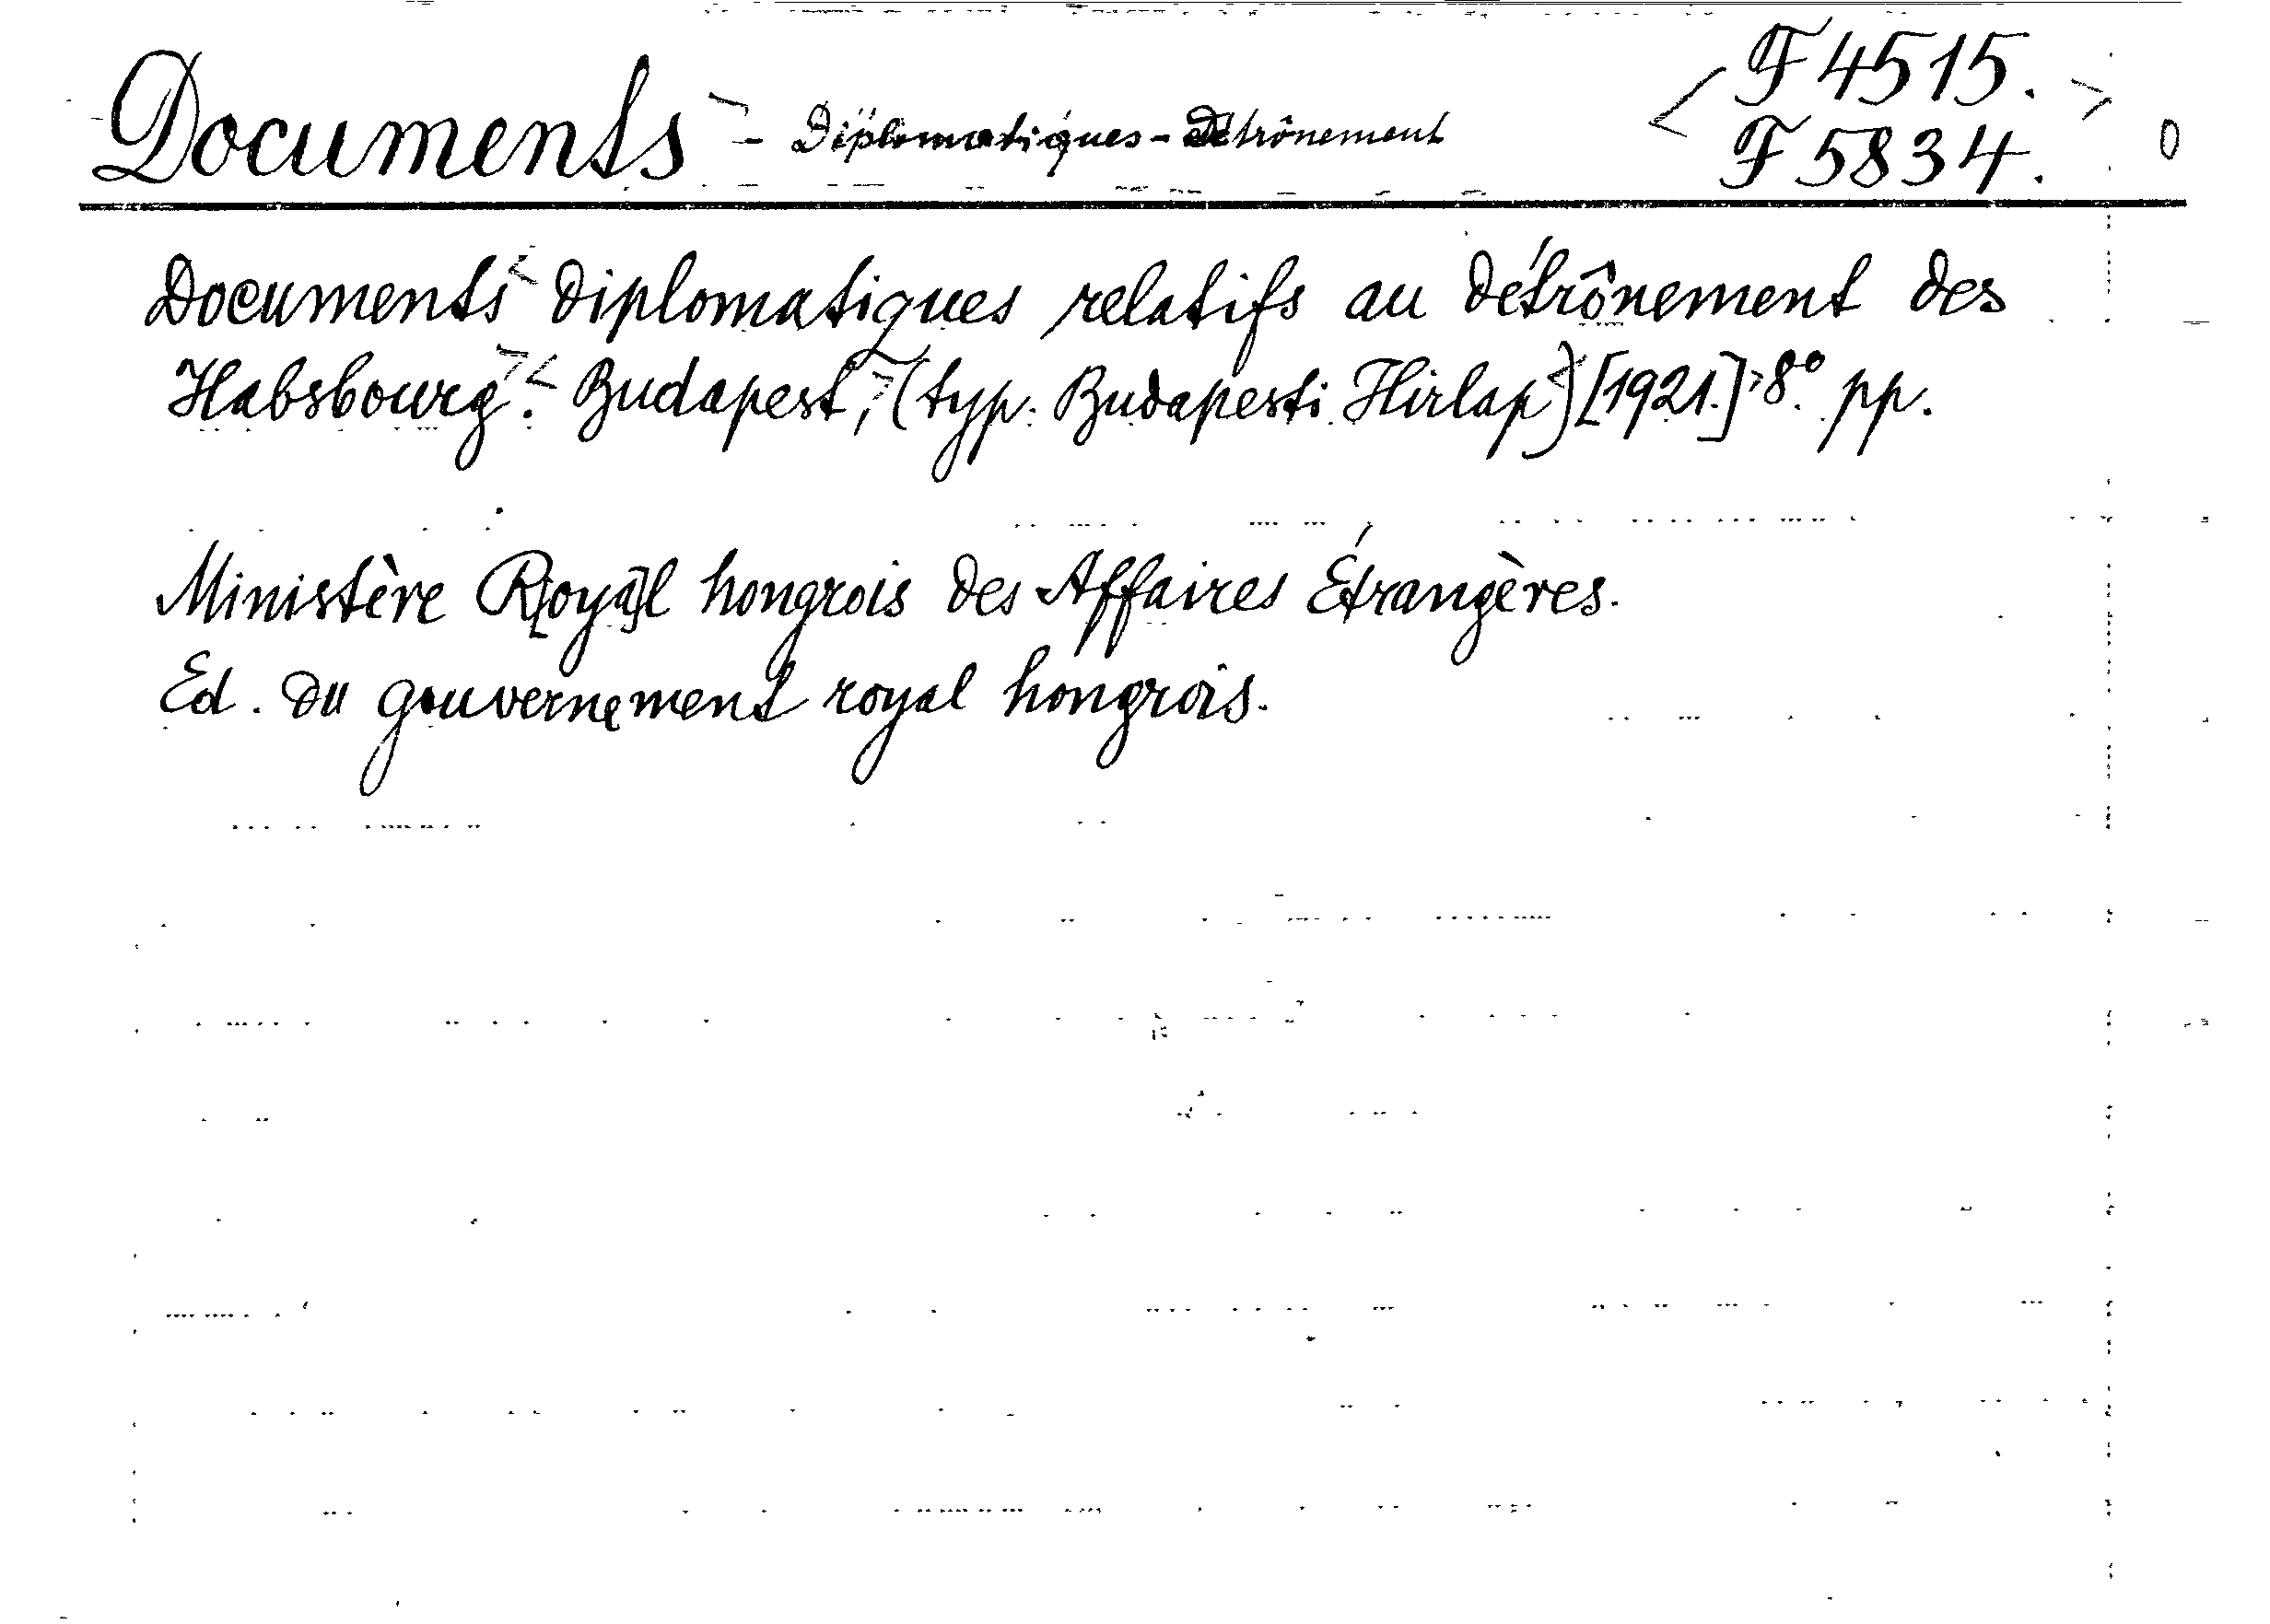 Documents - Diplomatiques - Détrônement
F 4515.
F 5834.
Documents diplomatiques relatifs au détrônement des
Habsbourg. Budapest, (typ. Budapesti Hirlap) [1921.] 8°. pp.
Ministère R[oya]l hongrois des Affaires Étrangères.
Ed. du gouvernement royal hongrois.